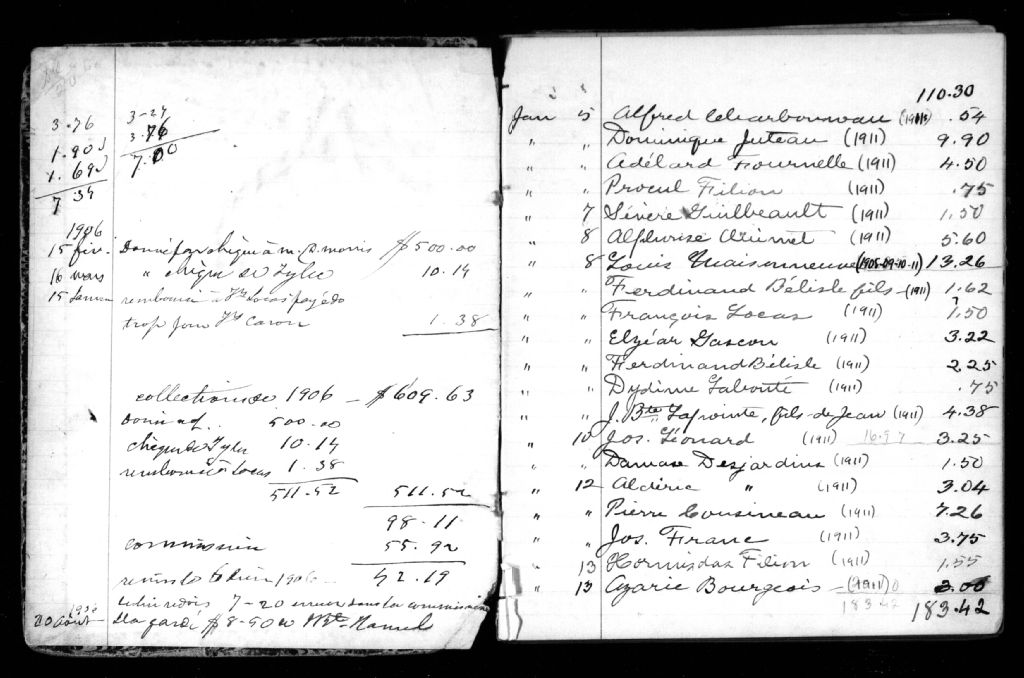 3.76
3-24
3.76
7.00
1.90
1.69
7 34
1906
15 fiv. Donné par chèque à m. D. morris $500.00
16 mars " chèque de Tyler 10.14
15 rembourser à Locas payé do
trop pour Caron 1.38
collection de 1906 - $609.63
500.00
chèque de Tyler 10.14
remboursé à Locas 1.38
511.52 511.52
98.11
commission 55.92
42.19
1906
7-20 erreur dans la commission
20 août la garde $8-50
110.30
Jan 5 Alfred Charbonneau .54
" " Dominique Juteau (1911) 9.90
" " Adélard Fournelle (1911) 4.50
" " Procul Filion (1911) .75
" 7 Sévère Guilbeault (1911) 1.50
" 8 Alphonse (1911) 5.60
" 8 Louis Maisonneuve (1905-09-10-11) 13.26
" " Ferdinand Bélisle fils - (1911) 1.62
" " François Locas (1911) 1.50
" " Elzéar Gascon (1911) 3.22
" " Ferdinand Bélisle (1911) 2.25
" " Dydime Labonté (1911) .75
" " J. Bte Lapointe, fils de Jean (1911) 4.38
" 10 Jos. Léonard (1911) 16.97 3.25
" " Damase Desjardins (1911) 1.50
" 12 Aldéric " (1911) 3.04
" " Pierre Cousineau (1911) 7.26
" " Jos. Franc (1911) 3.75
" 13 Hormisdas Filion (1911) 1.55
" 13 Azarie Bourgeois - (1911) 3.00
183.42
183.42